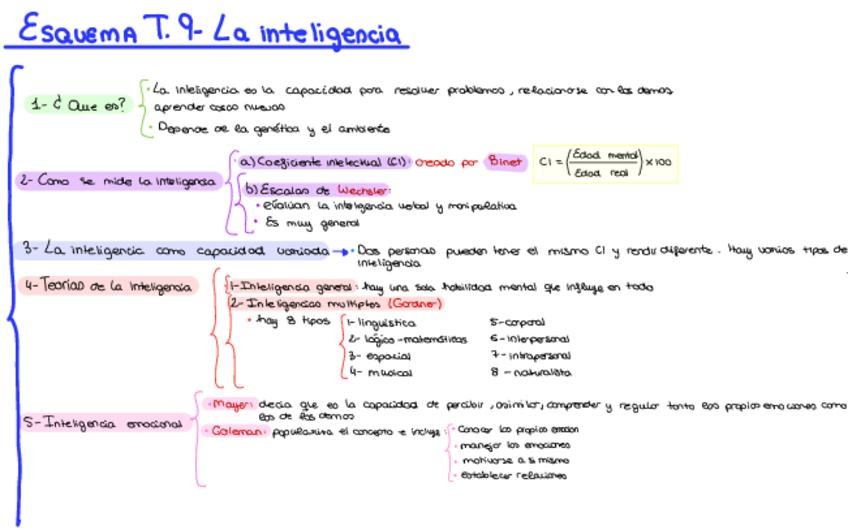 Esquema T. 9- La inteligencia
1- ¿ Que es?
· La inteligencia es la capacidad para resolver problemas, relacionarse con los demas
aprender cosas nuevas
· Depende de la genética y el ambiente
2- Como se mide la inteligencia
a) Coeficiente intelectual (CI): creado por Binet
CI = (Edad mental / Edad real) x 100
b) Escalas de Wechsler:
· evaluan la inteligencia verbal y manipulativa
· Es muy general
3- La inteligencia como capacidad variada → · Dos personas pueden tener el mismo CI y rendir diferente. Hay varios tipos de
inteligencia
4- Teorías de la inteligencia
1- Inteligencia general: hay una sola habilidad mental que influye en todo
2- Inteligencias multiples (Gardner)
· hay 8 tipos
1- linguística
2- lógico-matemáticas
3- espacial
4- musical
5- corporal
6- interpersonal
7- intrapersonal
8 - naturalista
5- Inteligencia emocional
· Mayer: decía que es la capacidad de percibir, asimilar, comprender y regular tanto las propias emociones como
las de los demas
· Goleman: populariza el concepto e incluye:
· Conocer las propias emocion
· manejar las emociones
· motivarse a si mismo
· establecer relaciones